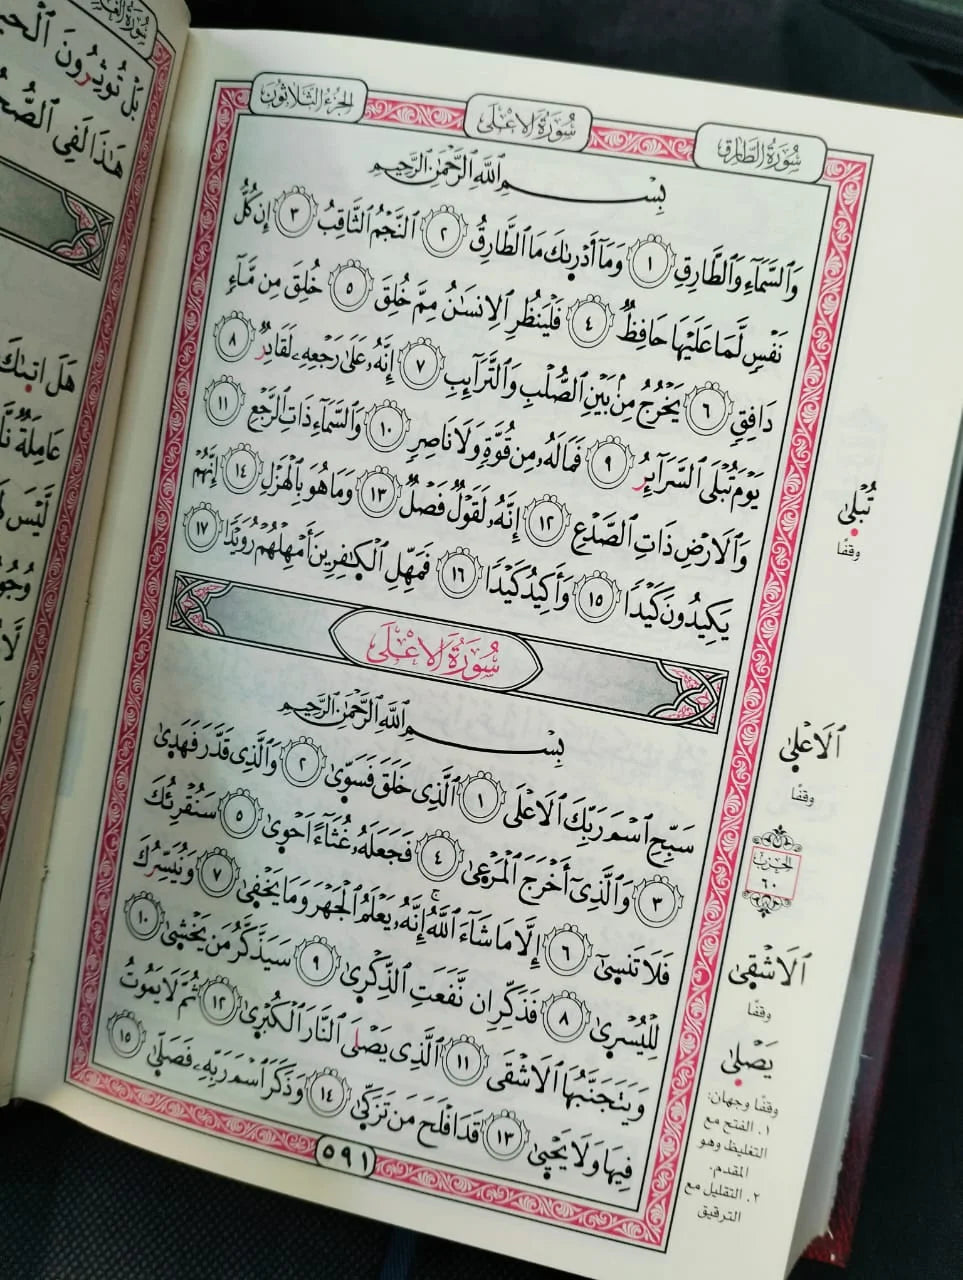 سُورَةُ الطَّارِقِ
سُورَةُ الَاعْلَى
الجُزْءُ الثَّلَاثُونَ
بِسْمِ اللَّهِ الرَّحْمَٰنِ الرَّحِيمِ
وَالسَّمَآءِ وَالطَّارِقِ ١ وَمَآ أَدْرِيٰكَ مَا الطَّارِقُ ٢ النَّجْمُ الثَّاقِبُ ٣ إِن كُلُّ
نَفْسٍ لَّمَا عَلَيْهَا حَافِظٌ ٤ فَلْيَنظُرِ الِانسَٰنُ مِمَّ خُلِقَ ٥ خُلِقَ مِن مَّآءٍ
دَافِقٍ ٦ يَخْرُجُ مِنۢ بَيْنِ الصُّلْبِ وَالتَّرَآئِبِ ٧ إِنَّهُۥ عَلَىٰ رَجْعِهِۦ لَقَادِرٌ ٨
يَوْمَ تُبْلَى السَّرَآئِرُ ٩ فَمَا لَهُۥ مِن قُوَّةٍ وَلَا نَاصِرٍ ١٠ وَالسَّمَآءِ ذَاتِ الرَّجْعِ ١١
وَالَارْضِ ذَاتِ الصَّدْعِ ١٢ إِنَّهُۥ لَقَوْلٌ فَصْلٌ ١٣ وَمَا هُوَ بِالْهَزْلِ ١٤ إِنَّهُمْ
يَكِيدُونَ كَيْدًا ١٥ وَأَكِيدُ كَيْدًا ١٦ فَمَهِّلِ الْكٰ۪فِرِينَ أَمْهِلْهُمْ رُوَيْدًا ١٧
سُورَةُ الَاعْلَى
بِسْمِ اللَّهِ الرَّحْمَٰنِ الرَّحِيمِ
سَبِّحِ اسْمَ رَبِّكَ الَاعْلَى ١ الَّذِى خَلَقَ فَسَوّ۪ىٰ ٢ وَالَّذِى قَدَّرَ فَهَد۪ىٰ
٣ وَالَّذِىٓ أَخْرَجَ الْمَرْع۪ىٰ ٤ فَجَعَلَهُۥ غُثَآءً اَحْو۪ىٰ ٥ سَنُقْرِئُكَ
فَلَا تَنس۪ىٰٓ ٦ إِلَّا مَا شَآءَ اللَّهُ إِنَّهُۥ يَعْلَمُ الْجَهْرَ وَمَا يَخْف۪ىٰ ٧ وَنُيَسِّرُكَ
لِلْيُسْر۪ىٰ ٨ فَذَكِّرِ ان نَّفَعَتِ الذِّكْر۪ىٰ ٩ سَيَذَّكَّرُ مَن يَخْش۪ىٰ ١٠
وَيَتَجَنَّبُهَا الَاشْقَى ١١ الَّذِى يَصْلَى النَّارَ الْكُبْر۪ىٰ ١٢ ثُمَّ لَا يَمُوتُ
فِيهَا وَلَا يَحْي۪ىٰ ١٣ قَدَ افْلَحَ مَن تَزَكّ۪ىٰ ١٤ وَذَكَرَ اسْمَ رَبِّهِۦ فَصَلّ۪ىٰ ١٥
٥٩١
تُبْل۪ىٰ
وقفًا
الَاعْل۪ىٰ
وقفًا
الحزب
٦٠
الَاشْق۪ىٰ
وقفًا
يَصْل۪ىٰ
وقفًا وجهان:
١. الفتح مع
التغليظ وهو
المقدم.
٢. التقليل مع
الترقيق
بَلْ تُوثِرُونَ
هَٰذَا لَفِى
هَلَ اتٜىٰكَ
عَامِلَةٌ
لَيْسَ